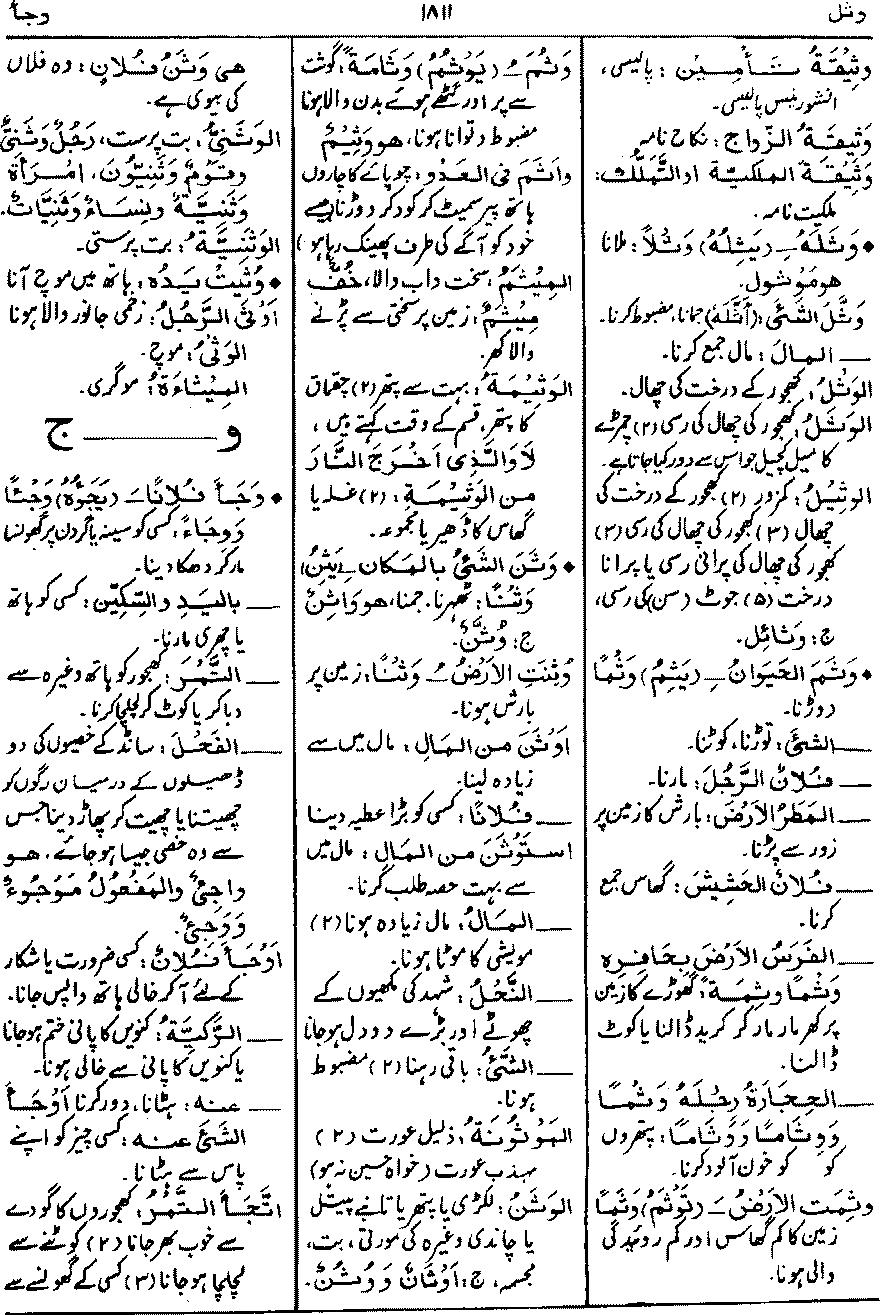 وثل
۱۸۱۱
وجأ
وَثِیْقَةُ تَـأمِـیْن : پالیسی،
انشورنیس پالیسی۔
وَثِیقَةُ الزَّواج : نکاح نامہ
وَثِیْقَةُ الملکیّة اوالتَّمَلُّك :
ملکیت نامہ۔
• وَثَلَهٗ ـِ (یَثِلُهٗ) وَثْلًا : ملانا
هومَوْثول۔
وَثَّلَ الشَّیَٔ : (أَثَّلَهٗ) جمانا، مضبوط کرنا۔
ــــ المالَ : مال جمع کرنا۔
الوَثْلُ : کھجور کے درخت کی چھال۔
الوَثَلُ : کھجور کی چھال کی رسی (۲) چمڑے
کا میل کچیل جو اس سے دور کیا جاتا ہے۔
الوثِیْلُ : کمزور (۲) کھجور کے درخت کی
چھال (۳) کھجور کی چھال کی رسی (۴)
کھجور کی چھال کی پرانی رسی یا پرانا
درخت (۵) جوٹ (سن) کی رسی،
ج : وَثائِل۔
• وَثَمَ الحَیَوانُ ـِ (یَثِمُ) وَثْمًا
دوڑنا۔
ــــ الشیَٔ : توڑنا، کوٹنا۔
ــــ فلانٌ الرَّجُلَ : مارنا۔
ــــ المَطَرُ الاَرْضَ : بارش کا زمین پر
زور سے پڑنا۔
ــــ فُلانٌ الحَشِیشَ : گھاس جمع
کرنا۔
ــــ الفَرَسُ الاَرْضَ بِحَافِرِہٖ
وَثْمًا وثِمَةً : گھوڑے کا زمین
پر کھر مار مار کر کرید ڈالنا یا کوٹ
ڈالنا۔
ــــ الحِجارَةُ رِجْلَهٗ وَثْمًا
وَوِثَامًا وَوُثَامًا : پتھروں
کو کو خون آلود کرنا۔
وثِمَت الاَرْضُ ـَ (تَوْثَمُ) وَثَمًا
زمین کا کم گھاس اور کم روئیدگی
والی ہونا۔
وَثُمَ ـُ (یَوْثُمُ) وَثَامَةً : گوشت
سے پر اور گٹھے ہوئے بدن والا ہونا
مضبوط و توانا ہونا، هووثِیْمٌ
واثَمَ فی العَدْوِ : چوپائے کا چاروں
ہاتھ پیر سمیٹ کر کود کر دوڑنا (جیسے
خود کو آگے کی طرف پھینک رہا ہو)
المِیْثَمُ : سخت داب والا، خُفٌّ
مِیْثَمٌ : زمین پر سختی سے پڑنے
والا کھر۔
الوَثِیْمَةُ : بہت سے پتھر (۲) چقماق
کا پتھر، قسم کے وقت کہتے ہیں،
لَاوَالَّذِی اَخْرَجَ النَّارَ
مِن الوَثِیْمَةِ : (۲) غلہ یا
گھاس کا ڈھیر یا مجموعہ۔
• وَثَنَ الشَّیُٔ بالمَکان ـِ (یَثِنُ)
وَثْنًا : ٹھہرنا، جمنا، هو وَاثِنٌ
ج : وُثَّنٌ۔
وُثِنَتِ الاَرْضُ ـُ وَثْنًا : زمین پر
بارش ہونا۔
اَوْثَنَ مِن المَالِ : مال میں سے
زیادہ لینا۔
ــــ فُلانًا : کسی کو بڑا عطیہ دینا
اسْتَوْثَنَ مِن المَالِ : مال میں
سے بہت حصہ طلب کرنا۔
ــــ المَالُ : مال زیادہ ہونا (۲)
مویشی کا موٹا ہونا۔
ــــ النَّحْلُ : شہد کی مکھیوں کے
چھوٹے اور بڑے دو دل ہوجانا
ــــ الشَّیُٔ : باقی رہنا (۲) مضبوط
ہونا۔
المَوْثُونَةُ : ذلیل عورت (۲)
مہذب عورت (خواہ حسین نہ ہو)
الوَثَنُ : لکڑی یا پتھر یا تانبے پیتل
یا چاندی وغیرہ کی مورتی، بت،
مجسمہ، ج : اَوْثَانٌ وَوُثُنٌ۔
هِی وَثَنُ فُلانٍ : وہ فلاں
کی بیوی ہے۔
الوَثَنِیُّ : بت پرست، رَجُلٌ وَثَنِیٌّ
وقَومٌ وَثَنِیُّونَ، امْرَأةٌ
وَثَنِیَّةٌ ونِساءٌ وَثَنِیَّاتٌ۔
الوَثَنِیَّةُ : بت پرستی۔
• وُثِیَتْ یَدُهٗ : ہاتھ میں موچ آنا
اَوْثَی الرَّجُلُ : زخمی جانور والا ہونا
الوَثْیُ : موچ۔
المِیْثَاءَةُ : موگری۔
و ــــــ ج
• وَجَأَ فُلانًا ـَ (یَجَؤُهٗ) وَجْئًا
وَوِجَاءً : کسی کو سینہ یا گردن پر گھونسا
مار کر دھکا دینا۔
ــــ بالیَدِ والسِّکِّیْن : کسی کو ہاتھ
یا چھری مارنا۔
ــــ التَّمْرَ : کھجور کو ہاتھ وغیرہ سے
دبا کر یا کوٹ کر لجلجا کرنا۔
ــــ الفَحْلَ : سانڈ کے خصیوں کی دو
ڈھیلوں کے درمیان رگوں کو
چھیتنا یا چھیت کر پھاڑ دینا جس
سے وہ خصی جیسا ہوجائے، هو
واجِیٌٔ والمَفعُولُ مَوْجُوءٌ
وَوَجِیٌٔ۔
اَوْجَأَ فُلَانٌ : کسی ضرورت یا شکار
کے لئے آکر خالی ہاتھ واپس جانا۔
ــــ الرَّکِیَّةُ : کنویں کا پانی ختم ہوجانا
یا کنویں کا پانی سے خالی ہونا۔
ــــ عنه : ہٹانا، دور کرنا اَوْجَأَ
الشَّیَٔ عنه : کسی چیز کو اپنے
پاس سے ہٹانا۔
اتَّجَأَ التَّمْرُ : کھجوروں کا گودے
سے خوب بھر جانا (۲) کوٹنے سے
لجلجا ہوجانا (۳) کسی کے گھونسے سے